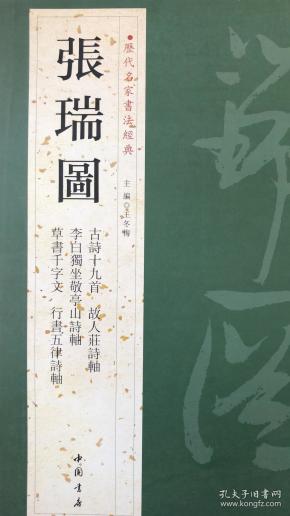 歷代名家書法經典
張瑞圖
主編 王冬梅
古詩十九首 故人莊詩軸
李白獨坐敬亭山詩軸
草書千字文 行書五律詩軸
中国书店
孔夫子旧书网